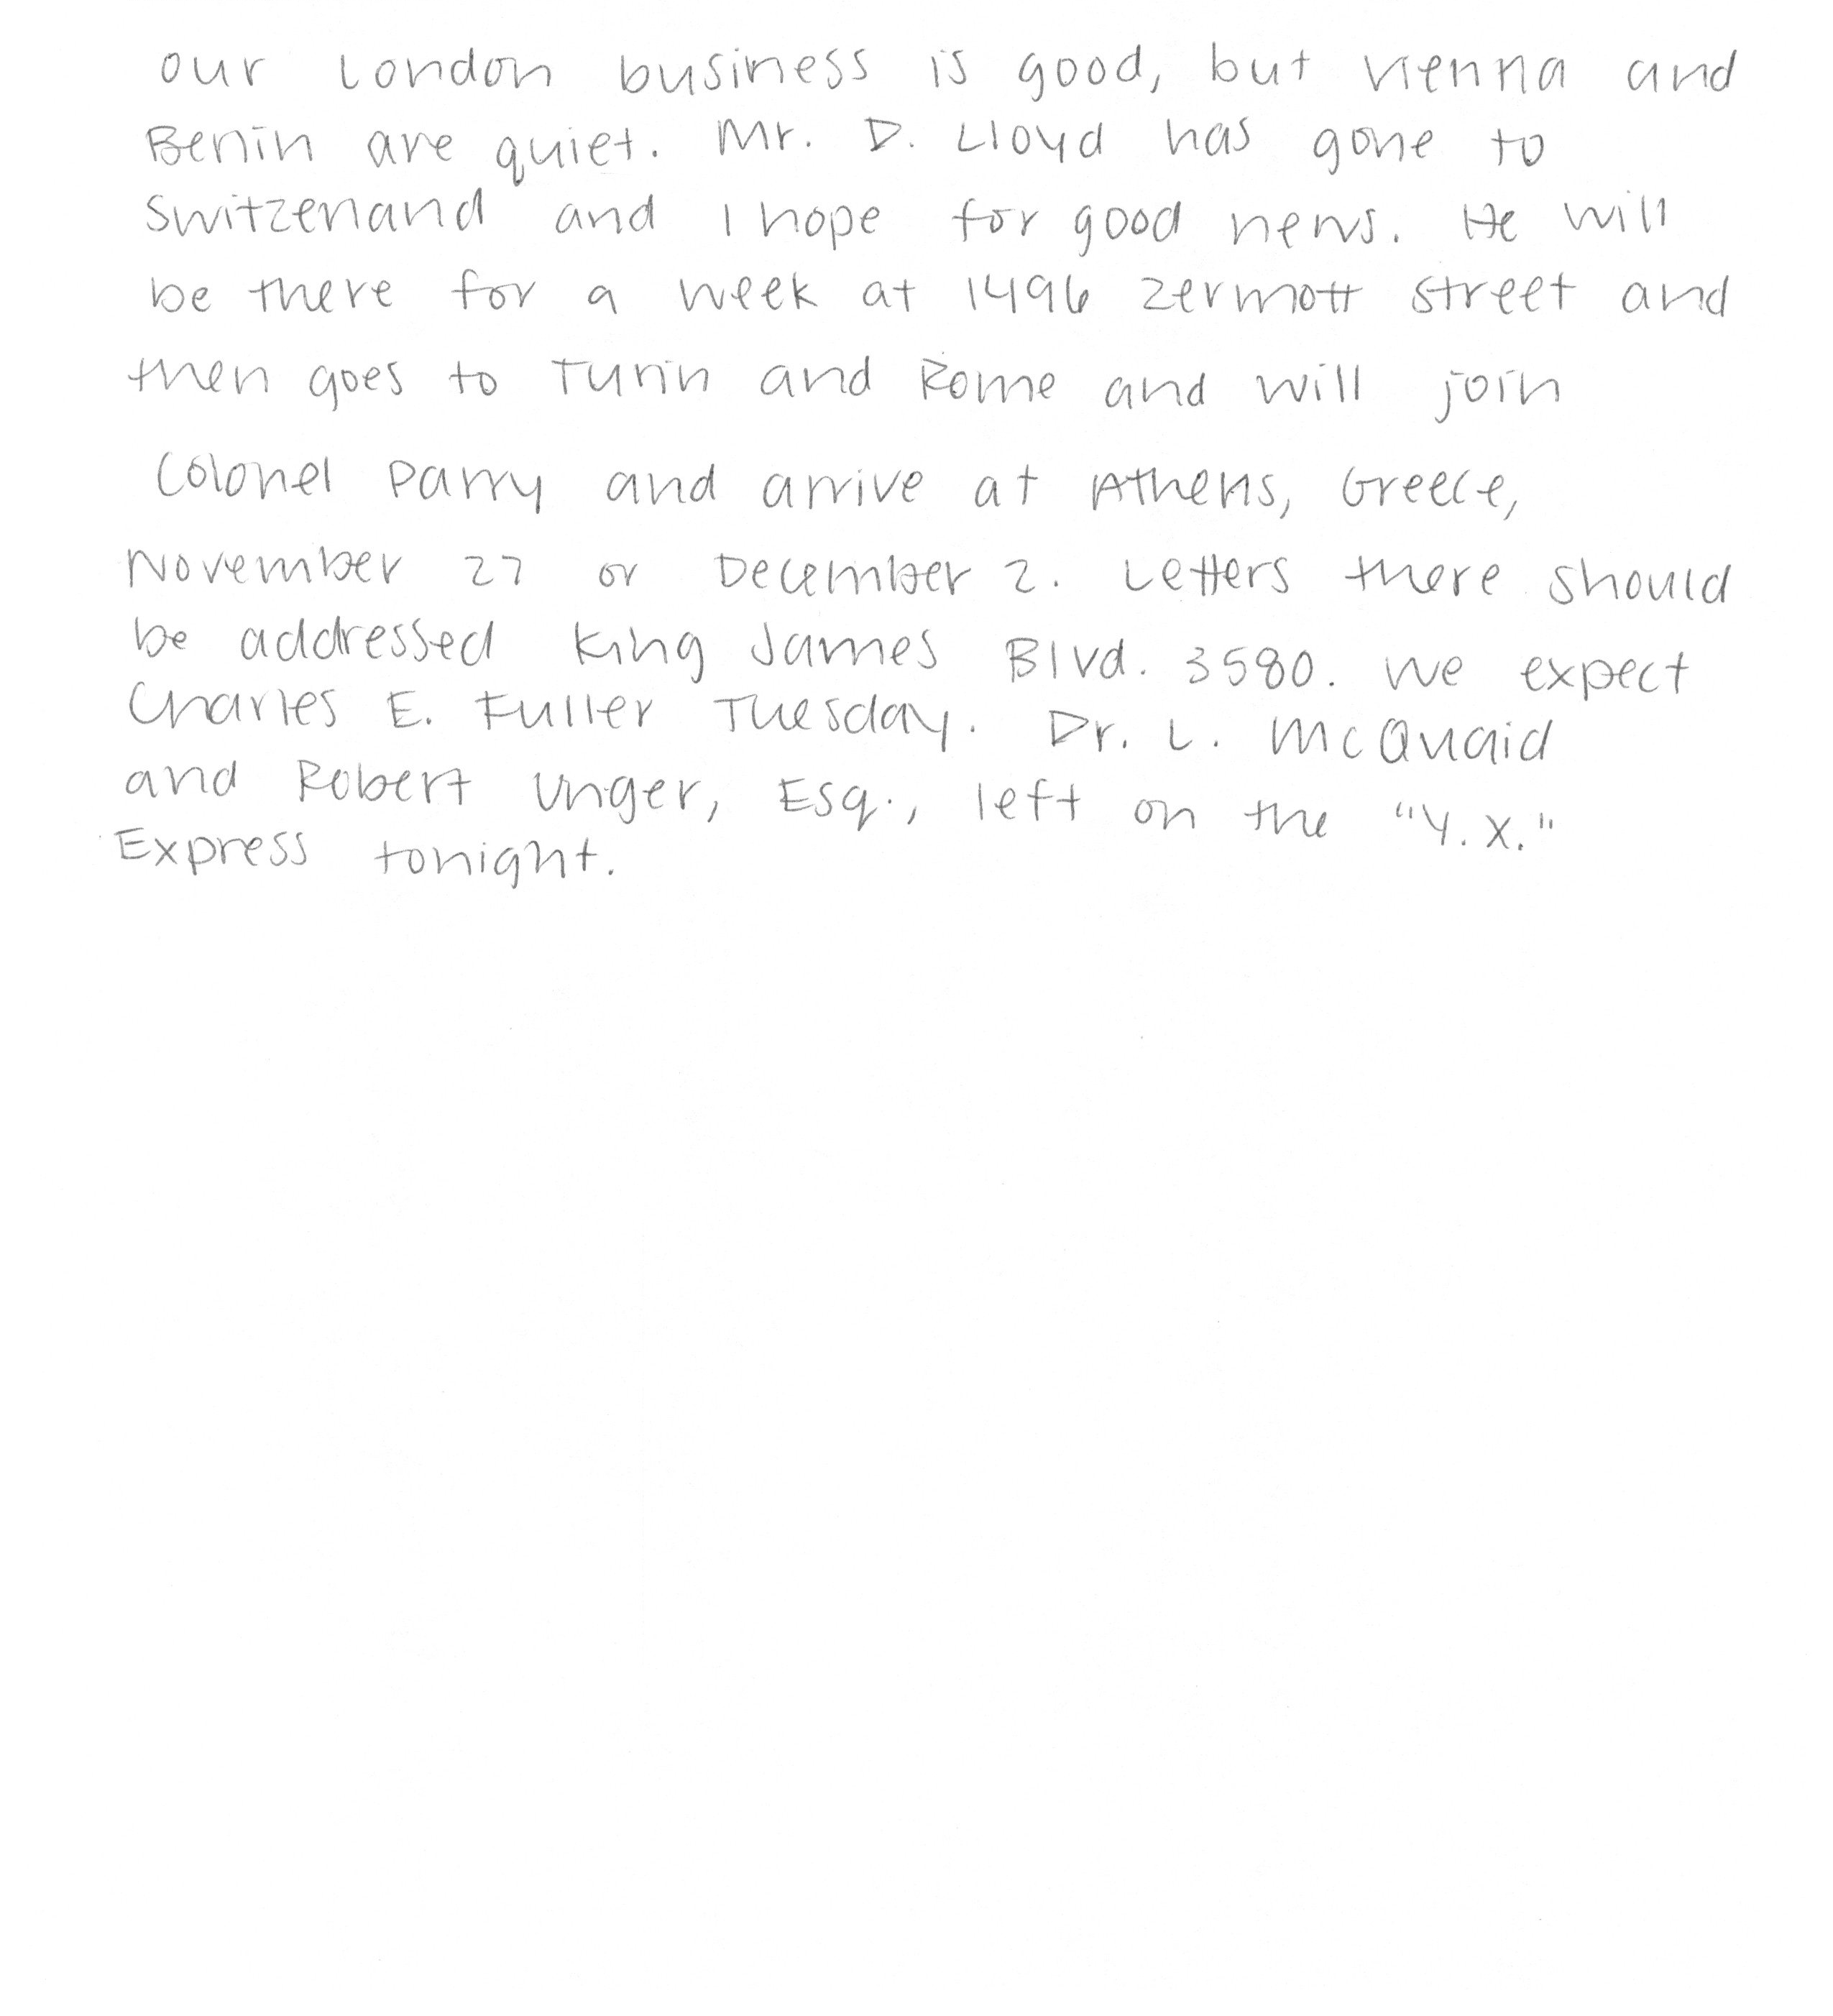 Our London business is good, but Vienna and
Berlin are quiet. Mr. D. Lloyd has gone to
Switzerland and I hope for good news. He will
be there for a week at 1496 Zermott Street and
then goes to Turin and Rome and will join
Colonel Parry and arrive at Athens, Greece,
November 27 or December 2. Letters there should
be addressed King James Blvd. 3580. We expect
Charles E. Fuller Tuesday. Dr. L. McQuaid
and Robert Unger, Esq., left on the "Y.X."
Express tonight.